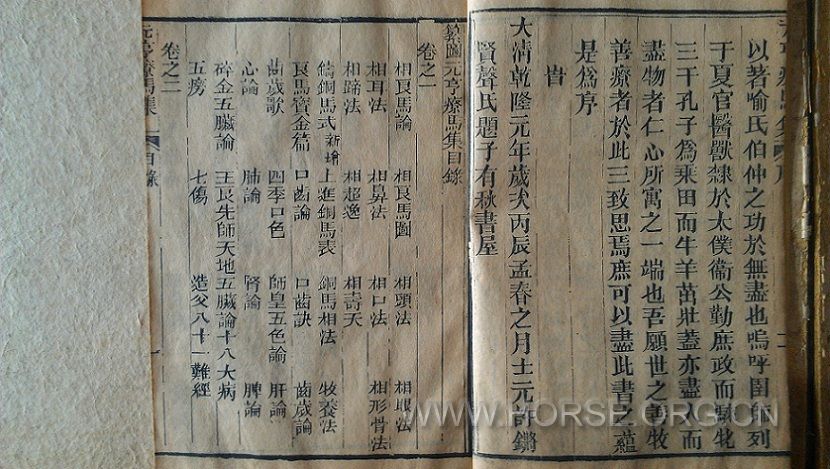 以著喻氏伯仲之功於無盡也嗚呼圉師列
于夏官醫獸隸於太僕衞公勤庶政而騋牝
三千孔子為乘田而牛羊茁壯蓋亦盡人而
盡物者仁心所寓之一端也吾願世之善牧
善療者於此三致思焉庶可以盡此書之蘊
是為序
旹
大清乾隆元年歲次丙辰孟春之月上元許鏘
賢聲氏題于有秋書屋
纂圖元亨療馬集目錄
卷之一
相良馬論 相良馬圖 相頭法 相眼法
相耳法 相鼻法 相口法 相形骨法
相蹄法 相超逸 相壽夭
鑄銅馬式新增 上進銅馬表 銅馬相法 牧養法
良馬寶金篇 口齒論 口齒訣 齒歲論
齒歲歌 四季口色 師皇五色論 肝論
心論 肺論 腎論 脾論
碎金五臟論 王良先師天地五臟論十八大病
五癆 七傷 造父八十一難經
卷之二
元亨療馬集 目錄 一
WWW.HORSE.ORG.CN